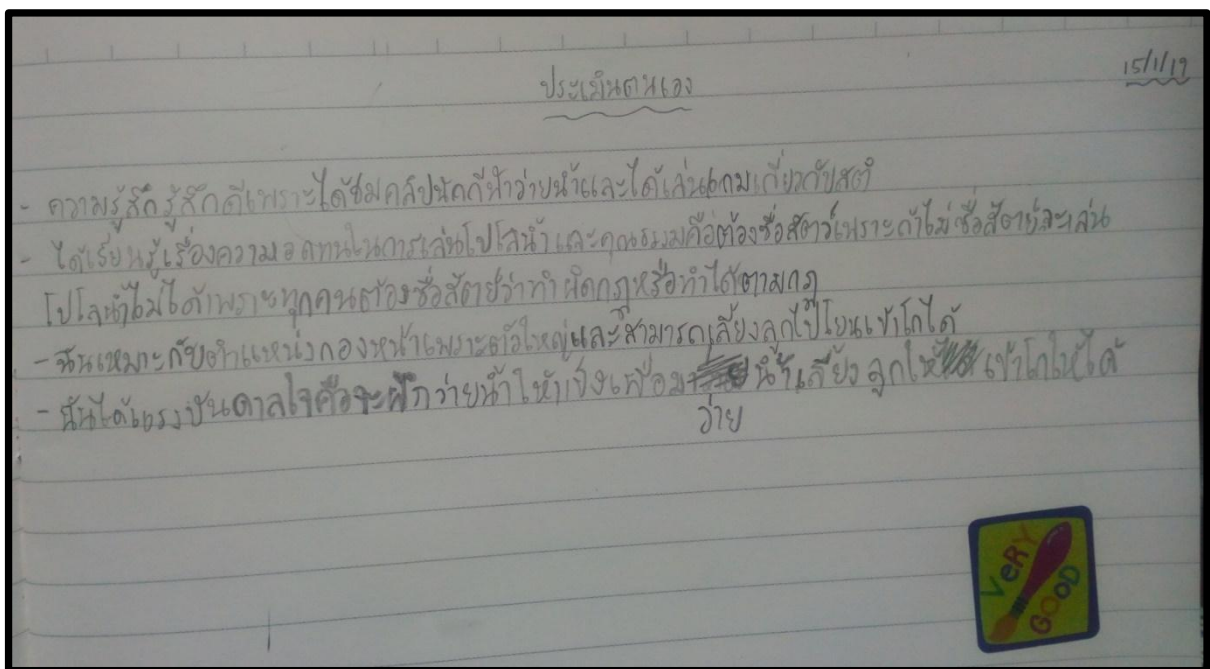 ประเมินตนเอง
15/1/19
- ความรู้สึก รู้สึกดีเพราะได้ชมคลิปนักกีฬาว่ายน้ำและได้เล่นเกมเกี่ยวกับสติ
- ได้เรียนรู้เรื่องความอดทนในการเล่นโปโลน้ำและคุณธรรมคือต้องซื่อสัตว์เพราะถ้าไม่ซื่อสัตย์จะเล่น
โปโลน้ำไม่ได้เพราะทุกคนต้องซื่อสัตย์ว่าทำผิดกฎหรือทำได้ตามกฎ
- ฉันเหมาะกับตำแหน่งกองหน้าเพราะตัวใหญ่และสามารถเลี้ยงลูกไปโยนเข้าโกได้
- ฉันได้แรงบันดาลใจคือจะฝึกว่ายน้ำให้แข็งเพื่อม น้ำเลี้ยงลูกให้ เข้าโกให้ได้
ว่าย
VERY GOOD